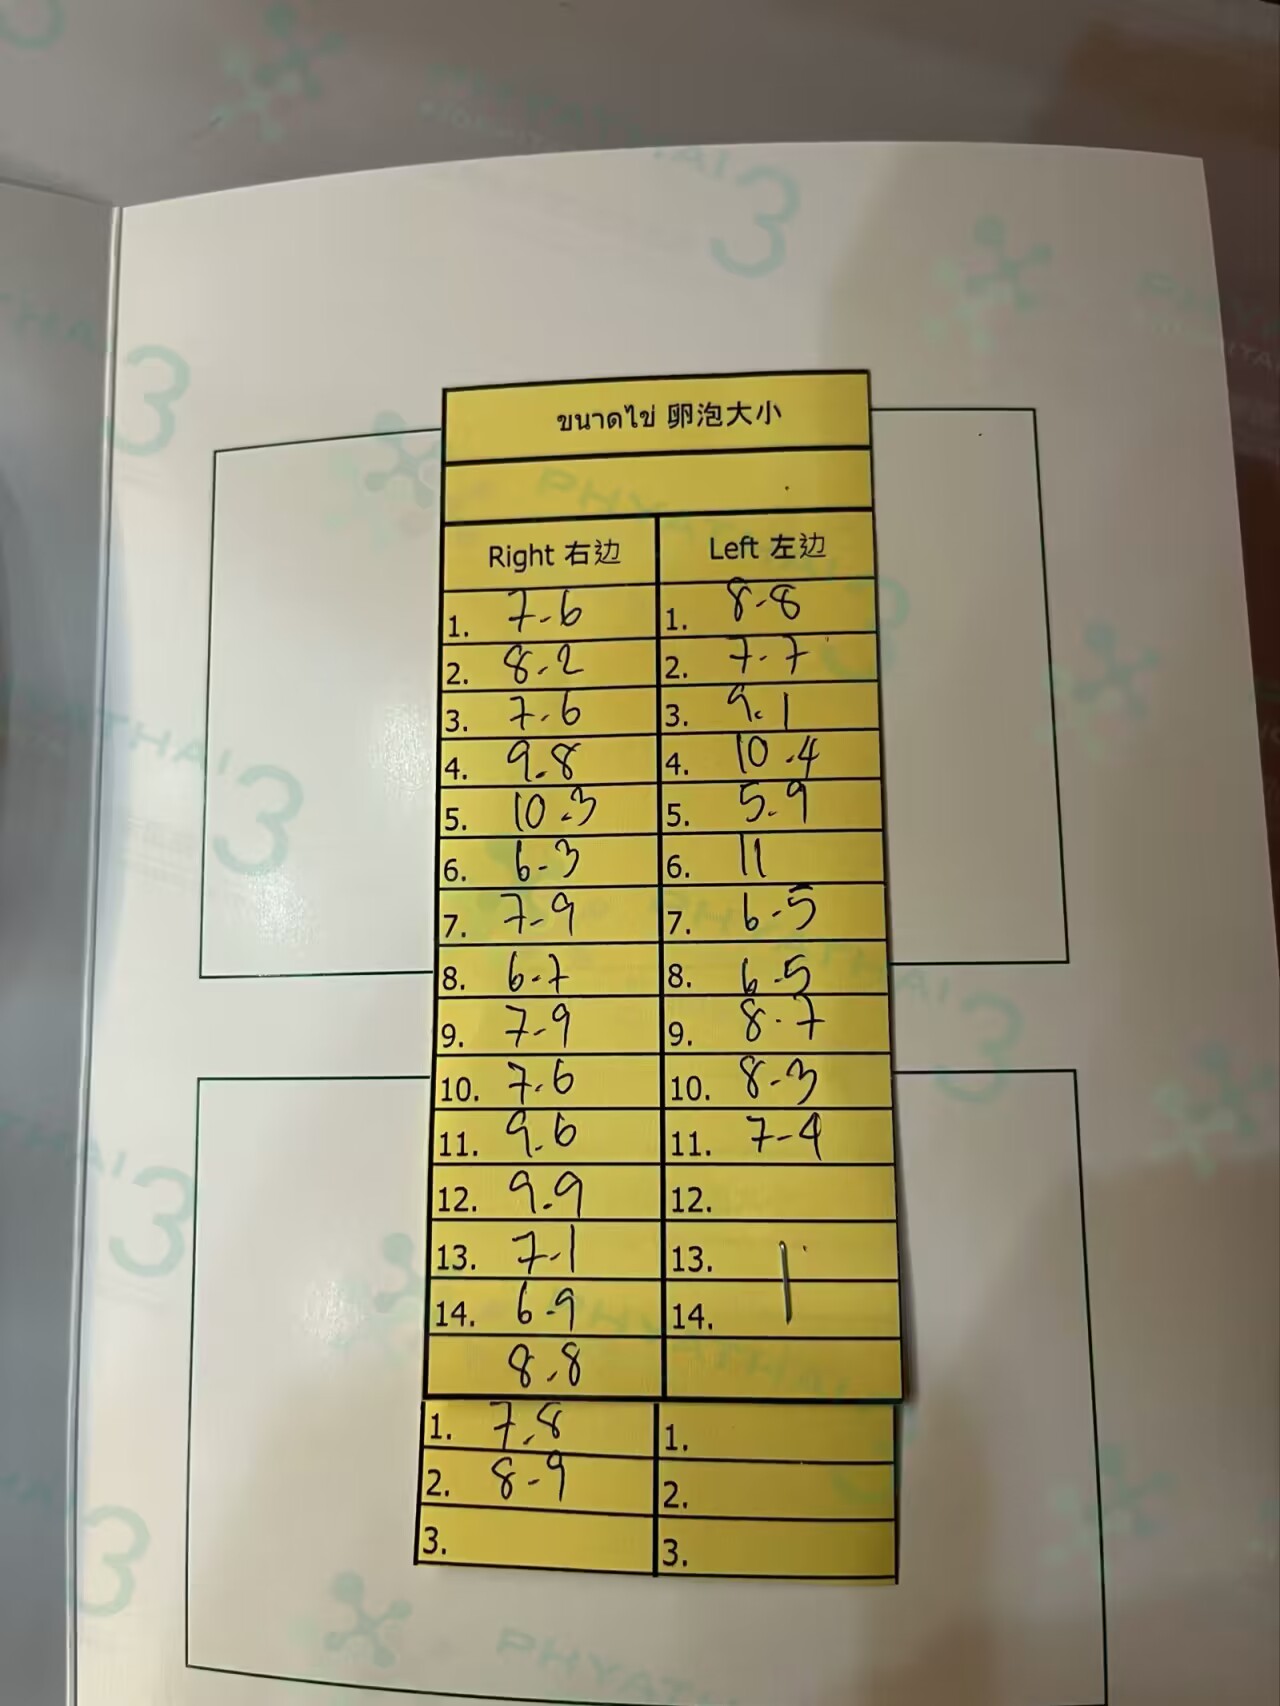 ขนาดไข่ 卵泡大小
Right 右边 Left 左边
1. 7.6 1. 8.8
2. 8.2 2. 7.7
3. 7.6 3. 9.1
4. 9.8 4. 10.4
5. 10.3 5. 5.9
6. 6.3 6. 11
7. 7.9 7. 6.5
8. 6.7 8. 6.5
9. 7.9 9. 8.7
10. 7.6 10. 8.3
11. 9.6 11. 7.4
12. 9.9 12.
13. 7.1 13.
14. 6.9 14.
8.8
1. 7.8 1.
2. 8.9 2.
3. 3.